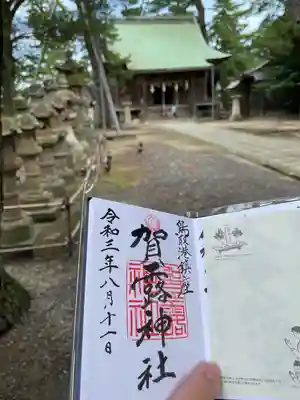 鳥取港鎮座
賀露神社
令和三年八月十一日